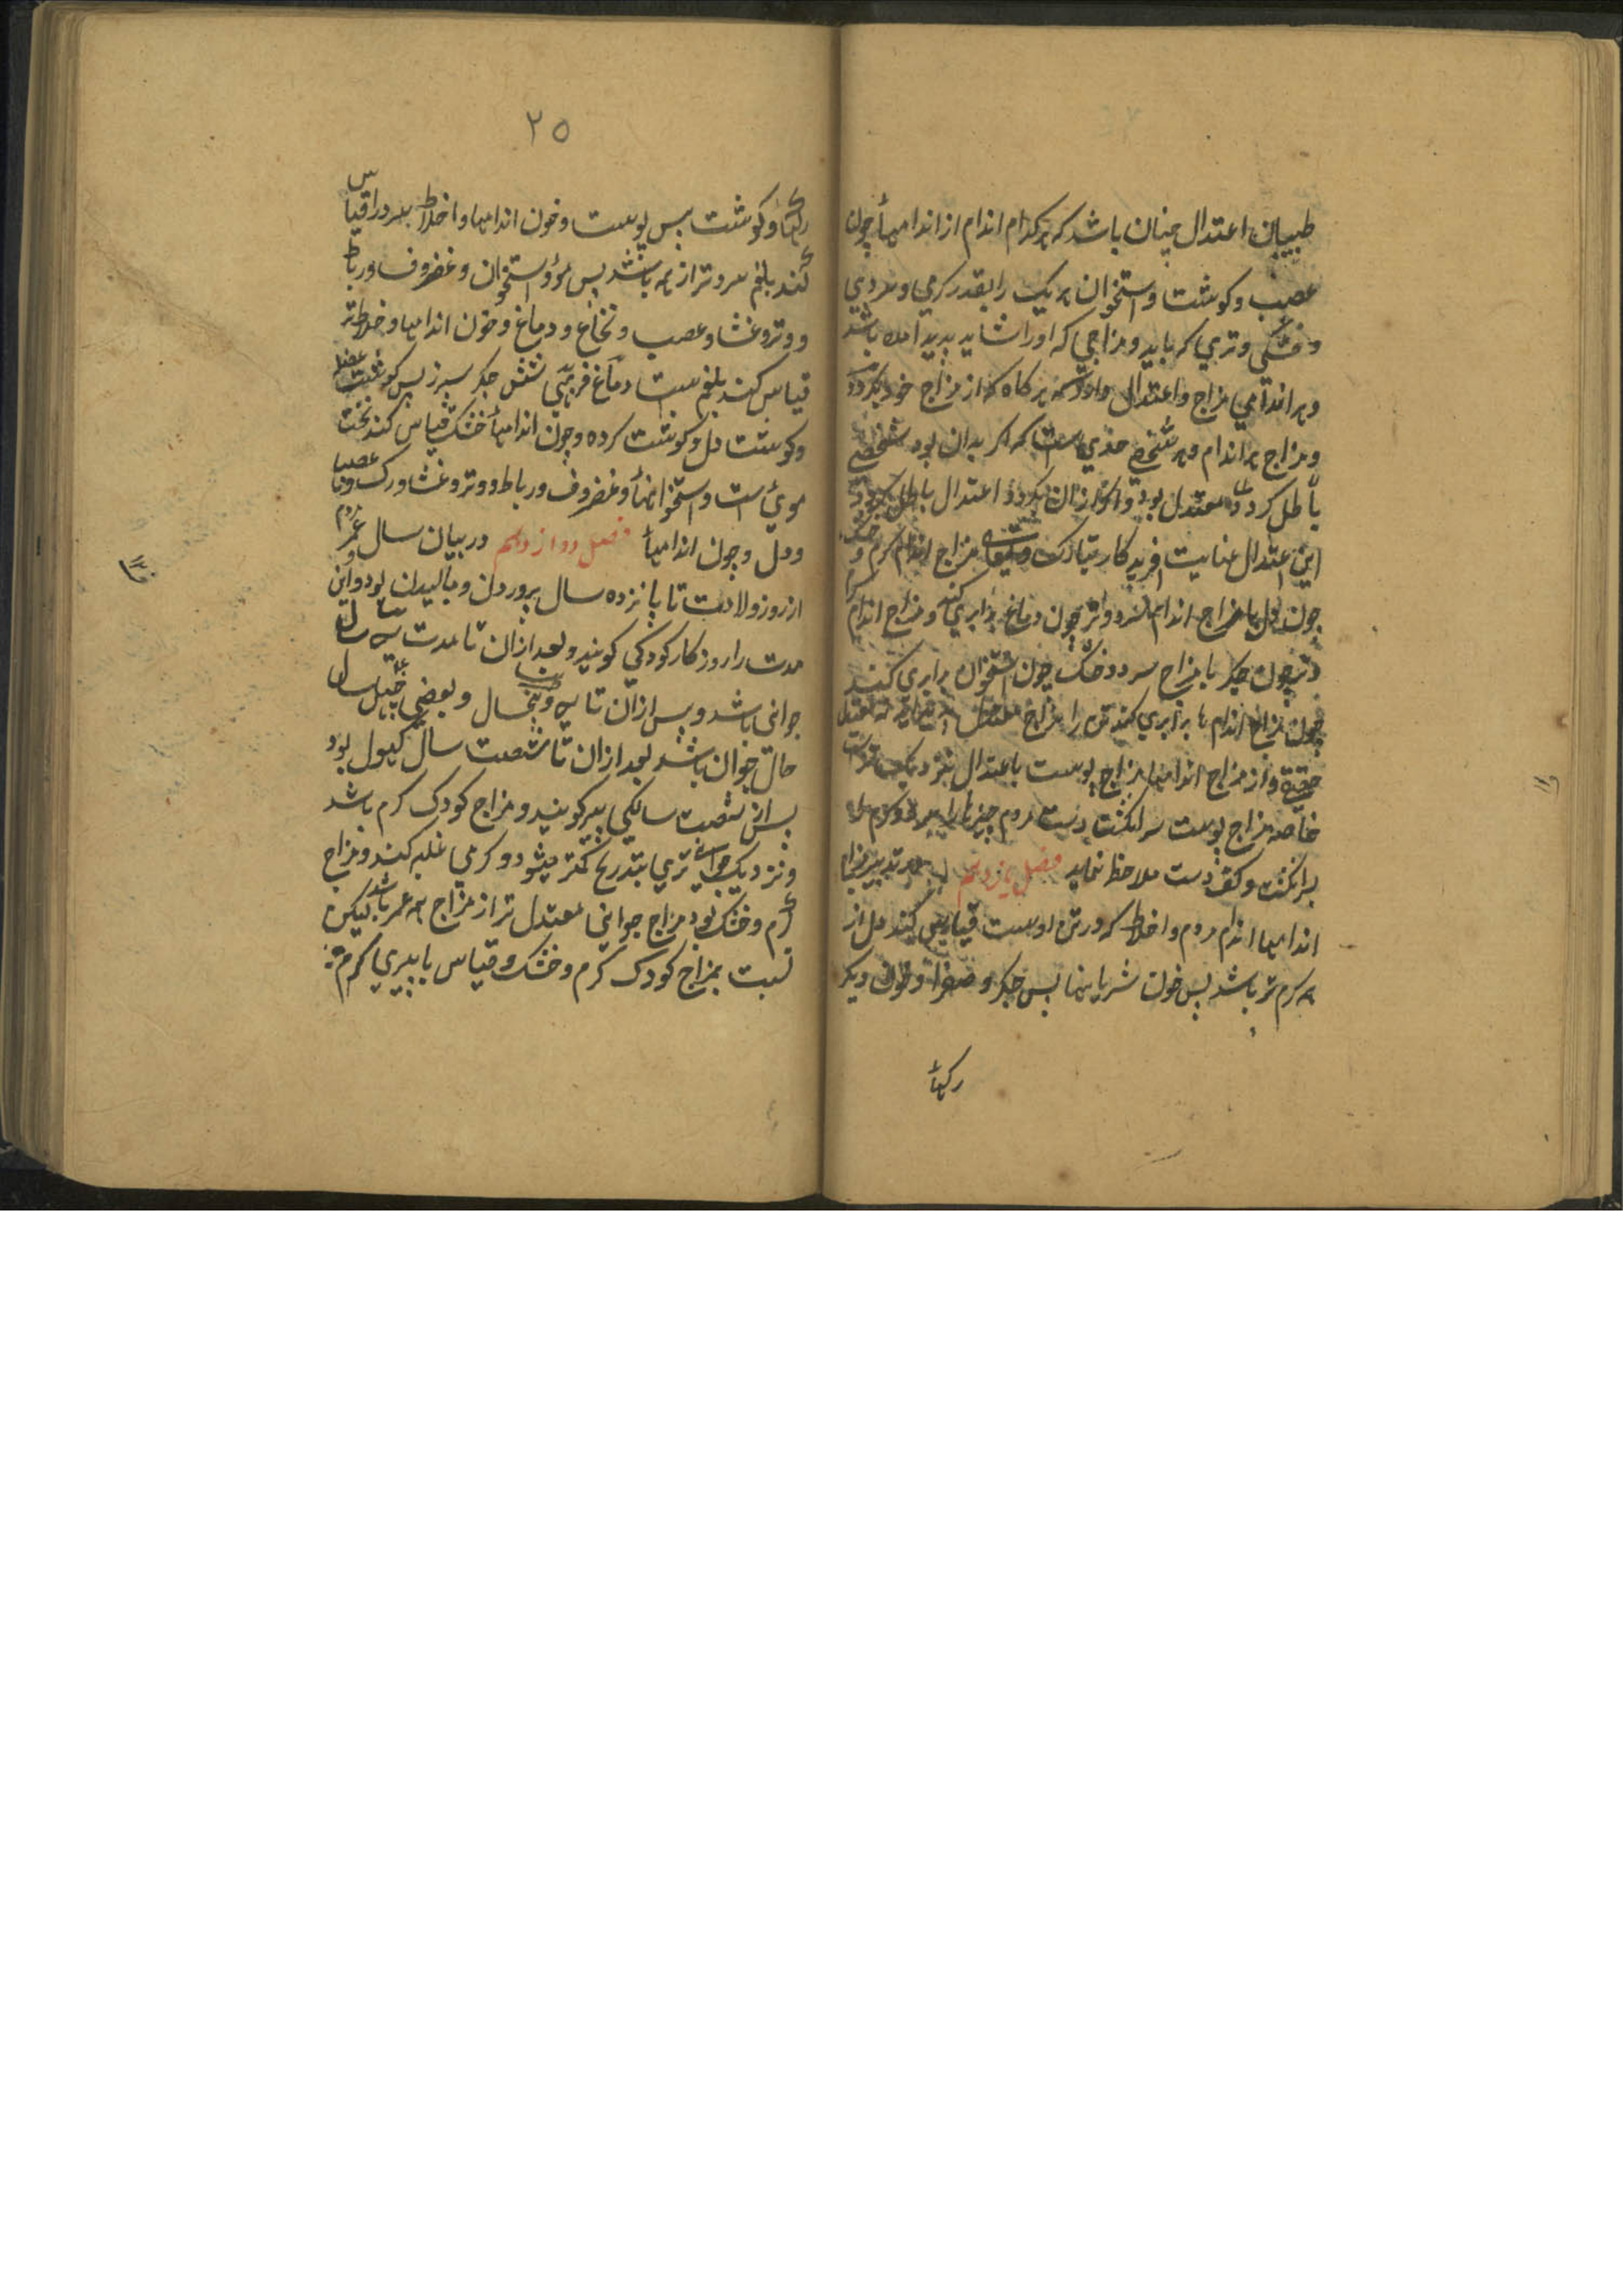 طبیبان اعتدال چنان باشد که هر کدام اندام از اندامها چون
عصب و کوشت و استخوان هر یک را بقدر کرمي و سردي
و خشکي و تري که باید و مزاجي که او را شاید پدید امده باشد
و هر اندامي مزاج و اعتدال دارد که هر کاه که از مزاج خود بکردد
و مزاج هر اندام و هر شخصي حدي است که اکر بدان بود شخصي
باطل کردد معتدل بود و اکر ازان بکردد اعتدال باطل کردد
این اعتدال عنایت افریدکار تبارک و تعالی مزاج اندام کرم و خشک
چون دل با مزاج اندام سرد و تر چون دماغ برابري کند و مزاج اندام کرم
و تر چون جکر با مزاج سرد و خشک چون استخوان برابري کند
چون مزاج اندام ها برابري کند تن را مزاج معتدل
حقیقة و از مزاج اندامها مزاج پوست باعتدال نزدیک تر است
خاصه مزاج پوست سر انکشت دست مردم چیزها را سرد و کرم
بر انکشت و کف دست ملاحظ نماید فصل یازدهم در تدبیر مزاج
اندامها اندام مردم و اخلاط که در تن اوست قیاس کنند دل از
همه کرم تر باشد پس خون شریانها پس جکر و صفرا و خون دیکر
رکها
۲۵
رکها و کوشت پس پوست و خون اندامها و اخلاط سرد را قیاس
کنند بلغم سردتر از همه باشد پس موؤ و استخوان و غضروف و رباط
و وتر و غشا و عصب و نخاع و دماغ و چون اندامها و خلاط تر
قیاس کنند بلغم ست دماغ فربهي شش جکر سپرز پس کوشت عضل
و کوشت دل و کوشت کرده و چون اندامها خشک قیاس کنند نخست
موئ است و استخوانها و غضروف و رباط و وتر و غشا و رک و عصب
و دل و چون اندامها فصل دوازدهم در بیان سال عمر مردم
از روز ولادت تا پانزده سال پروردن و بالیدن بود و این
مدت را روزکار کودکي کویند و بعد ازان تا مدت سي سال
جوانی باشد و پس ازان تا سي و پنجسال و بعضي چهل سال
حال جوان باشد بعد ازان تا شصت سال کهول بود
پس از شصت سالکي پیر کویند و مزاج کودک کرم باشد
و نزدیک جوانی تري بتدریج کمتر میشود و کرمي غلبه کند و مزاج
کرم و خشک بود مزاج جواني معتدل تر از مزاج همه عمر باشد لیکن
نسبت بمزاج کودک کرم و خشک و قیاس با پیري کرم